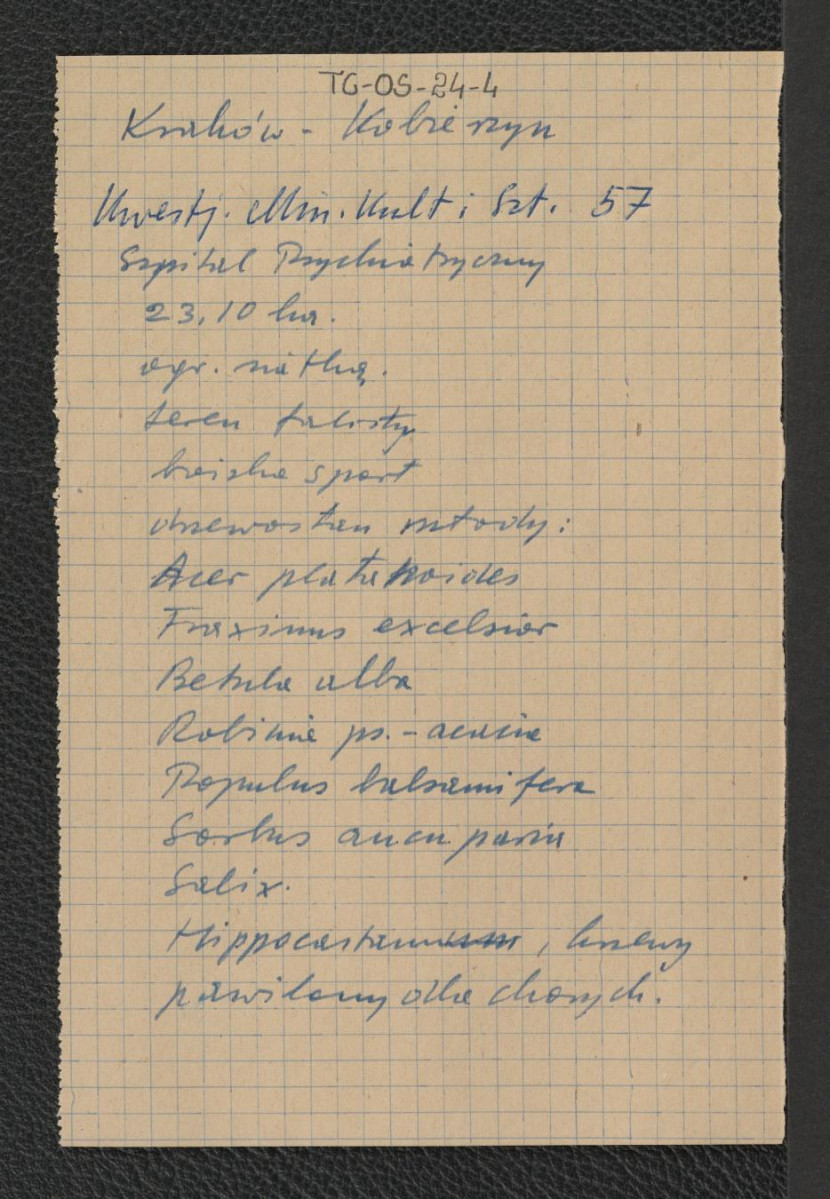 TG-OS-24-4
Kraków - Kobierzyn
Kwestj. Min. Kult i Szt. 57
Szpital Psychiatryczny
23,10 ha.
ogr. siatką.
teren falisty
boisko sport
drzewostan młody:
Acer platanoides
Fraxinus excelsior
Betula alba
Robinia ps.-acacia
Populus balsamifera
Sorbus aucuparia
Salix.
Hippocastanum, krzewy
pawilony dla chorych.